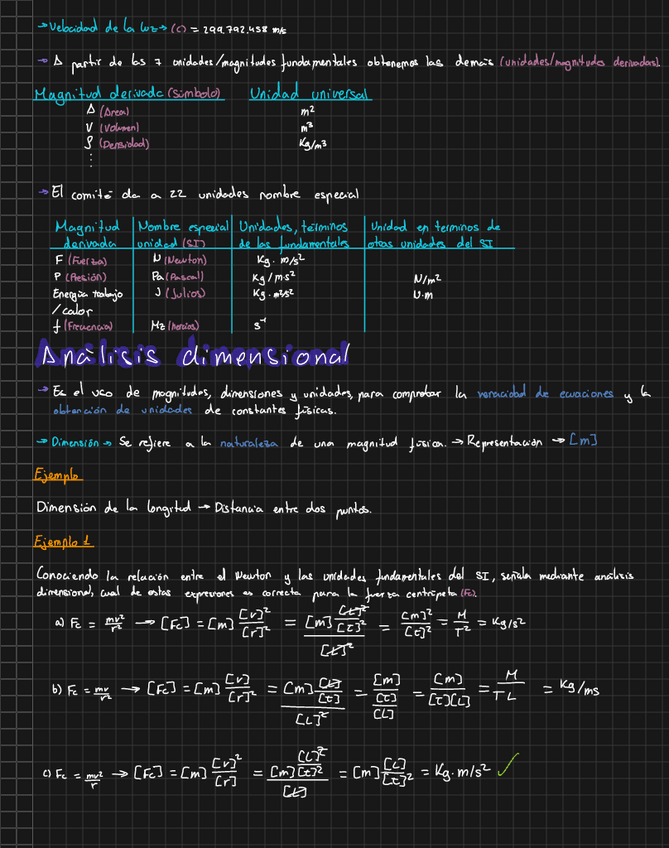 → Velocidad de la luz → (c) = 299.792.458 m/s
→ A partir de las 7 unidades/magnitudes fundamentales obtenemos las demás (unidades/magnitudes derivadas).
Magnitud derivada (símbolo) Unidad universal
A (Área) m²
V (Volumen) m³
ρ (Densidad) Kg/m³
⋮
→ El comité da a 22 unidades nombre especial
Magnitud derivada | Nombre especial unidad (SI) | Unidades, términos de las fundamentales | Unidad en terminos de otras unidades del SI
F (Fuerza) | N (Newton) | Kg · m/s²
P (Presión) | Pa (Pascal) | Kg/m·s² | N/m²
Energía trabajo /calor | J (Julios) | Kg · m²/s² | N·m
f (Frecuencia) | Hz (Hercios) | s⁻¹
Análisis dimensional
→ Es el uso de magnitudes, dimensiones y unidades, para comprobar la veracidad de ecuaciones y la
obtención de unidades de constantes físicas.
→ Dimensión → Se refiere a la naturaleza de una magnitud física. → Representación → [m]
Ejemplo
Dimensión de la longitud → Distancia entre dos puntos.
Ejemplo 1
Conociendo la relación entre el Newton y las unidades fundamentales del SI, señala mediante análisis
dimensional, cual de estas expresiones es correcta para la fuerza centrípeta (Fc).
a) Fc = mv²/r² → [Fc] = [m] [v]²/[r]² = [m] [L]²/[t]² / [L]² = [m]²/[t]² = M/T² = Kg/s²
b) Fc = mv/r² → [Fc] = [m] [v]/[r]² = [m] [L]/[t] / [L]² = [m]/[t] / [L] = [m]/[t][L] = M/TL = Kg/ms
c) Fc = mv²/r → [Fc] = [m] [v]²/[r] = [m] [L]²/[t]² / [L] = [m] [L]/[t]² = Kg·m/s² ✓